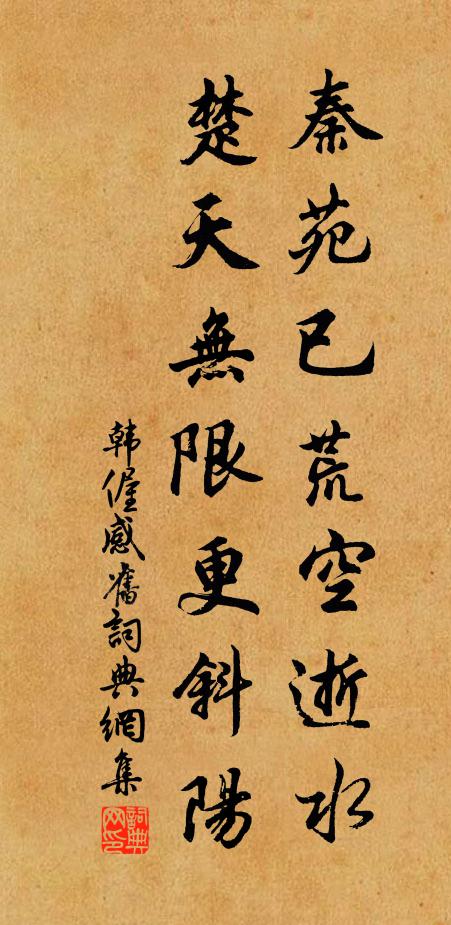 秦苑已荒空逝水
楚天無限更斜陽
韩偓感舊詞典網集
詞典网印